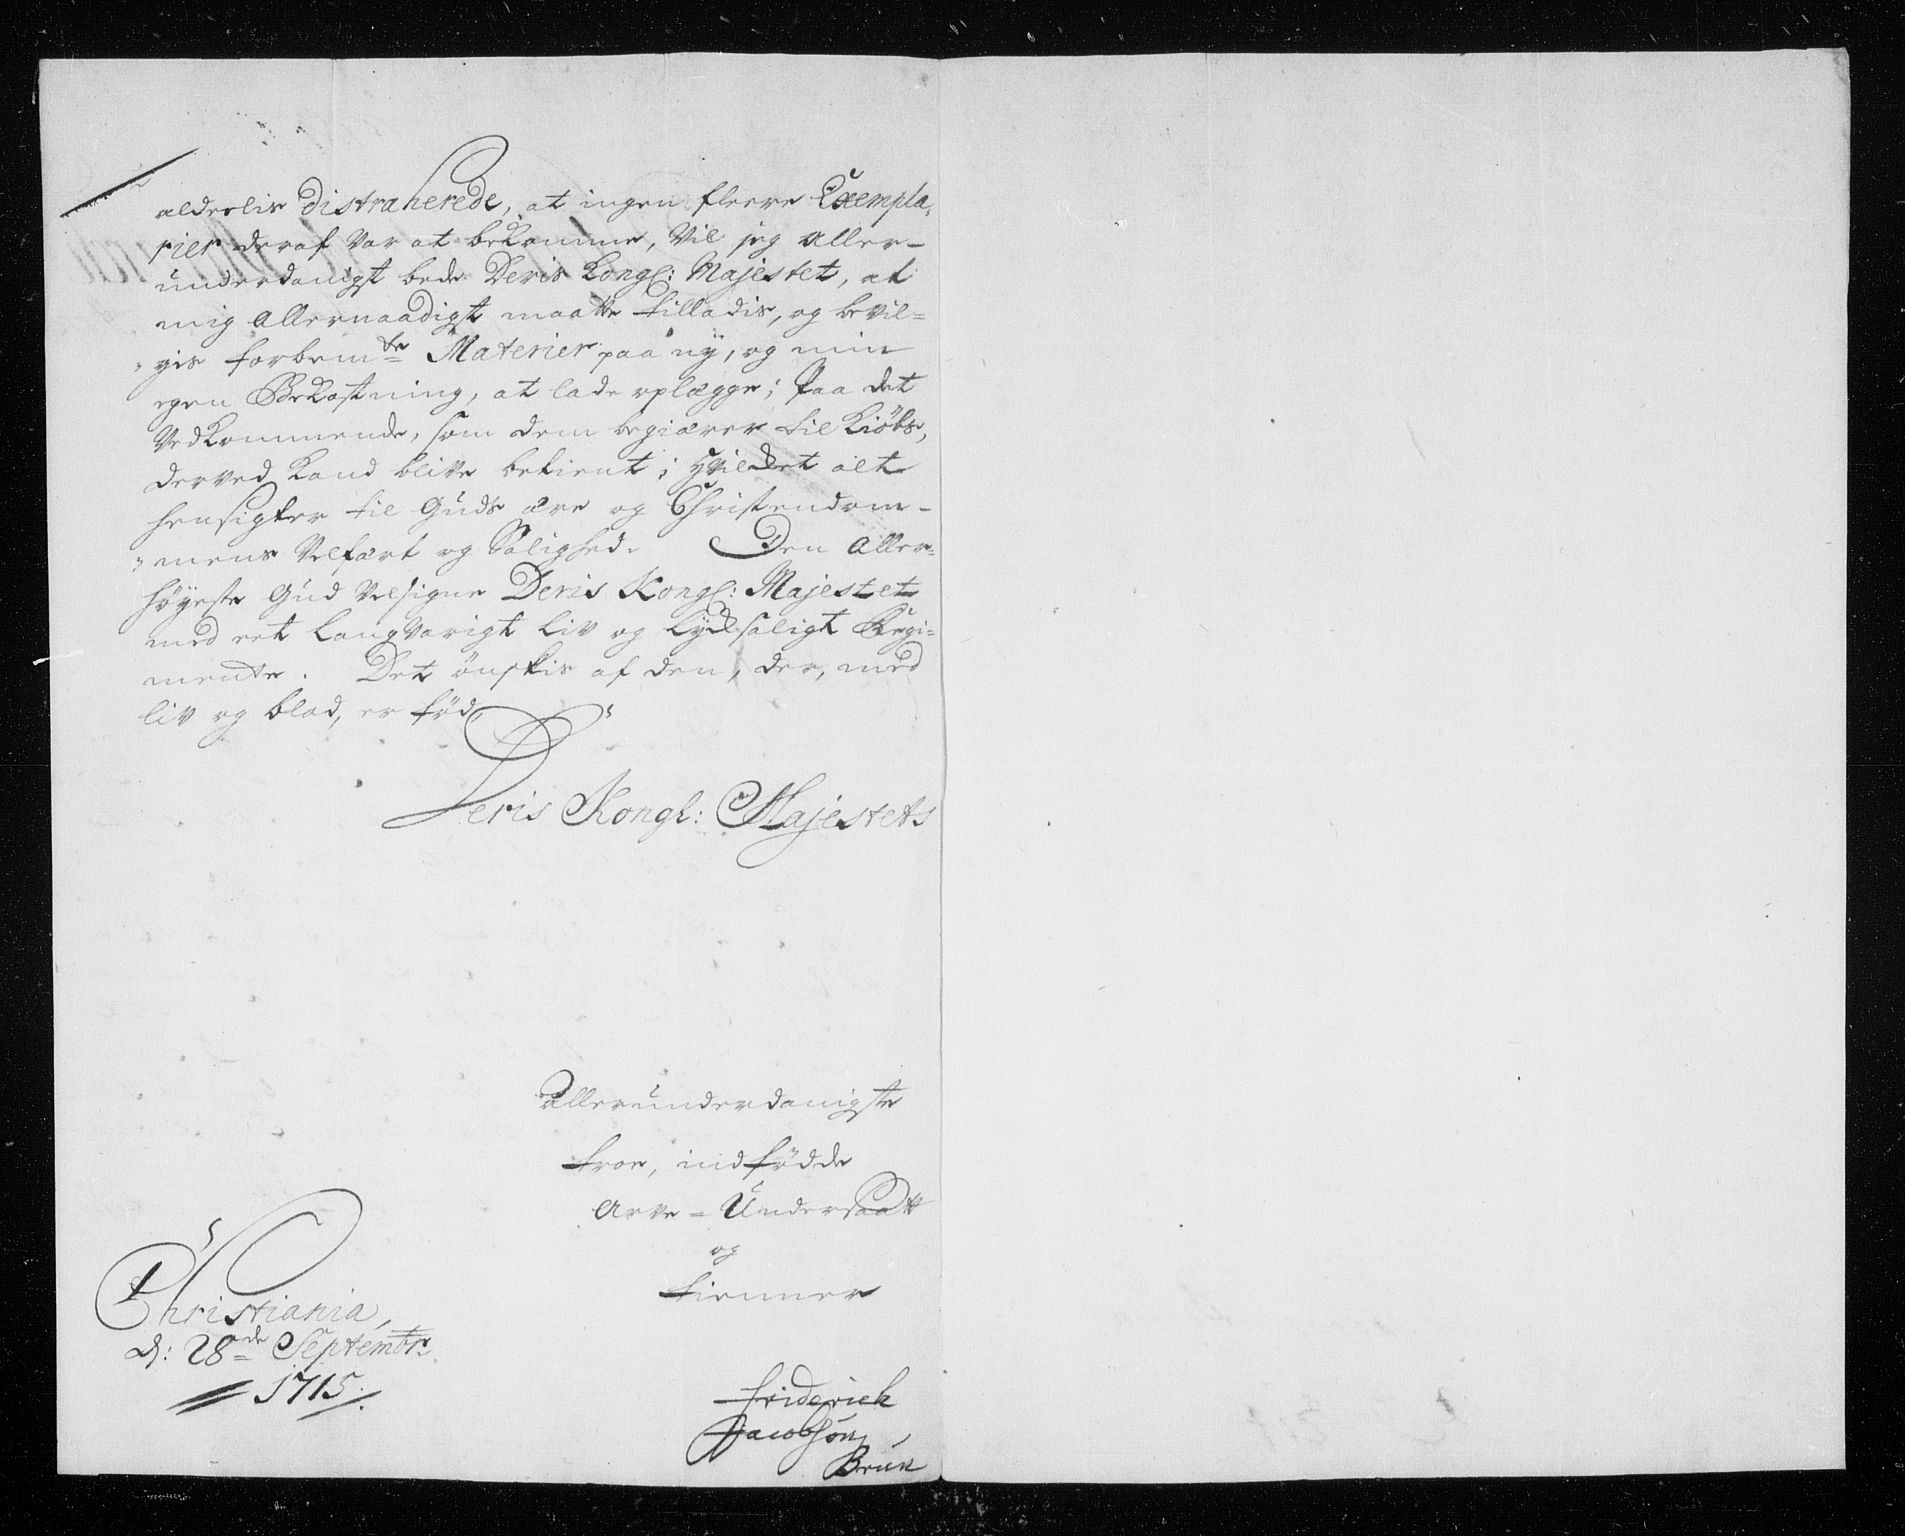 aldelis distraherede, at ingen fleere Exempla,
rier deraf var at bekomme, vil jeg aller-
underdanigst bede Deris Kongl: Majestet, at
mig allernaadigst maatte tilladis, og bevil-
gis forbemte Materier paa ny, og min
egen Bekostning, at lade oplægge; Paa det
Vedkommende, som dem begiærer til Kiøbs,
derved kand blive betient; Hvilket alt
hensigter til Guds ære og Christendom-
mens Velfært og Salighed. Den Aller-
høyeste Gud velsigne Deris Kongl: Majestet
med eet langvarigt liv og lycksaligt Regi-
mente. Det ønskis af den, der, med
liv og blod, er fød,
Deris Kongl: Majestets
Allerunderdanigste
troe, indfødde
Arve-Undersaatt
og
tienner
Christiania,
d: 28de Septembr:
1715.
Friderich
Jacobsøn
Brun